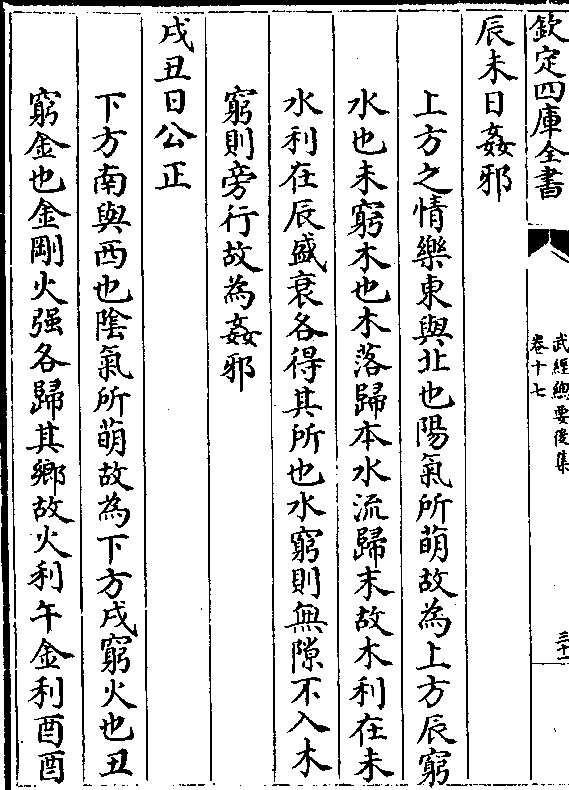 欽定四庫全書
武經總要後集
卷十七
三十一
辰未日姦邪
上方之情樂東與北也陽氣所萌故為上方辰窮
水也未窮木也木落歸本水流歸末故木利在未
水利在辰盛衰各得其所也水窮則無隙不入木
窮則旁行故為姦邪
戌丑日公正
下方南與西也陰氣所萌故為下方戌窮火也丑
窮金也金剛火强各歸其鄉故火利午金利酉酉